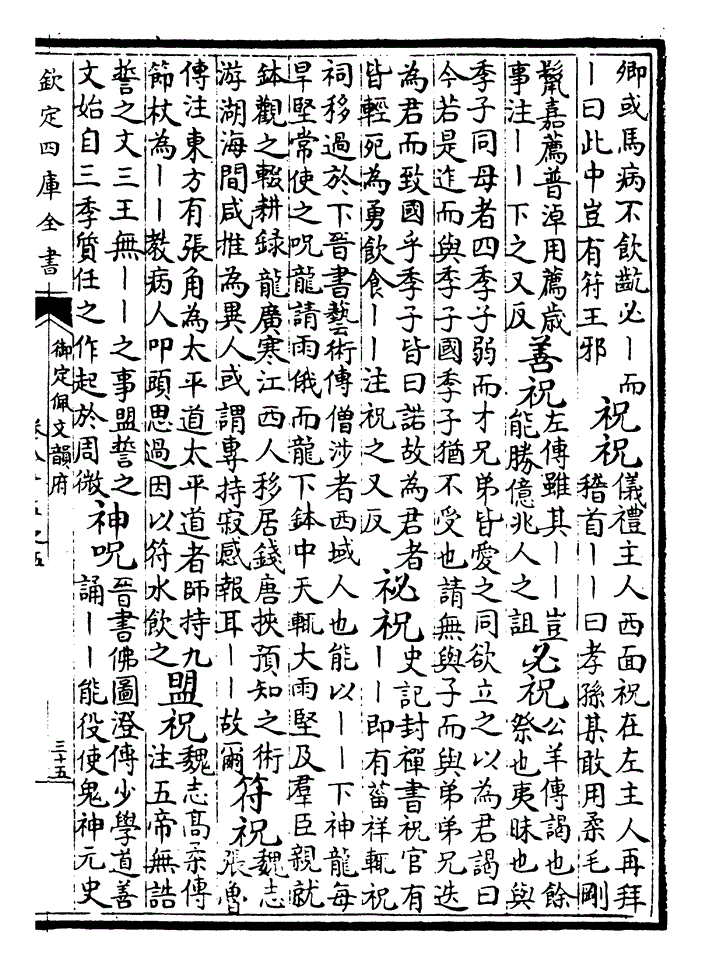 卿或馬病不飲齕必｜而
｜曰此中豈有符王邪
祝祝
儀禮主人西面祝在左主人再拜
稽首｜｜曰孝孫某敢用柔毛剛
鬛嘉薦普淖用薦歳
事注｜｜下之又反
善祝
左傳雖其｜｜豈
能勝億兆人之詛
必祝
公羊傳謁也餘
祭也夷昧也與
季子同母者四季子弱而才兄弟皆愛之同欲立之以為君謁曰
今若是迮而與季子國季子猶不受也請無與子而與弟弟兄迭
為君而致國乎季子皆曰諾故為君者
皆輕死為勇飲食｜｜注祝之又反
祕祝
史記封禪書祝官有
｜｜即有菑祥輒祝
祠移過於下晉書藝術傳僧涉者西域人也能以｜｜下神龍每
旱堅常使之呪龍請雨俄而龍下鉢中天輒大雨堅及羣臣親就
鉢觀之輟耕録龍廣寒江西人移居錢唐挾預知之術
游湖海間咸推為異人或謂專持寂感報耳｜｜故爾
符祝
魏志
張魯
傳注東方有張角為太平道太平道者師持九
節杖為｜｜教病人叩頭思過因以符水飲之
盟祝
魏志高柔傳
注五帝無誥
誓之文三王無｜｜之事盟誓之
文始自三季質任之作起於周微
神呪
晉書佛圖澄傳少學道善
誦｜｜能役使鬼神元史
欽定四庫全書
御定佩文韻府
三十五